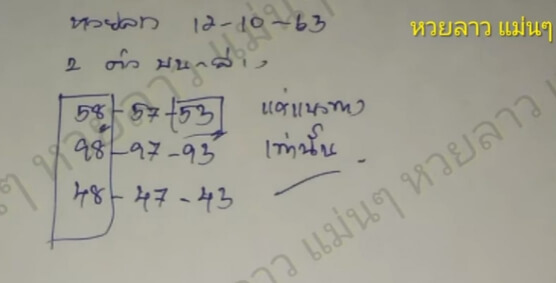 หวยลาว แม่นๆ
หวยลาว 12-10-63
2 ตัว บน-ล่าง
58-57-53 แค่แนวทาง
98-97-93 เท่านั้น
48-47-43
หวยลาว แม่นๆ หวยลาว
หวยลาว แม่นๆ